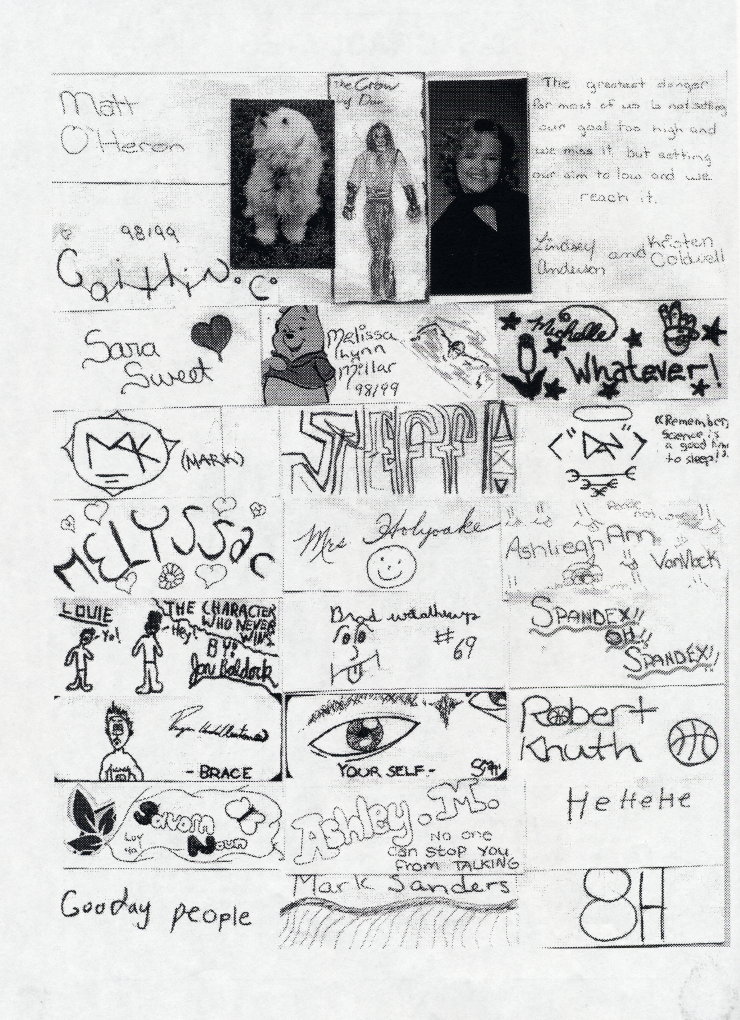 Matt
O'Heron
The Crow
by Dan
The greatest danger
for most of us is not setting
our goal too high and
we miss it but setting
our aim to low and we
reach it.
Lindsey
Anderson
and
Kristen
Coldwell
98/99
Caitlin C.
Sara
Sweet
Melissa
Lynn
Millar
98/99
Michelle
Whatever!
MARK
(MARK)
STEFF
<"DAN">
"Remember,
Science is
a good time
to sleep!"
MELYSSA C
Mrs Holyoake
Ashliegh Ann
VonVlack
LOUIE
Yo!
Hey!
THE CHARACTER
WHO NEVER
WINS
BY:
Jon Baldock
Brad
#69
SPANDEX!!
OH!!
SPANDEX!!
- BRACE
YOUR SELF -
Robert
Knuth
HeHeHe
Savorn
Noun
Luv
ya!
Ashley. M.
NO one
can STOP YOU
from TALKING
Gooday people
Mark Sanders
8H